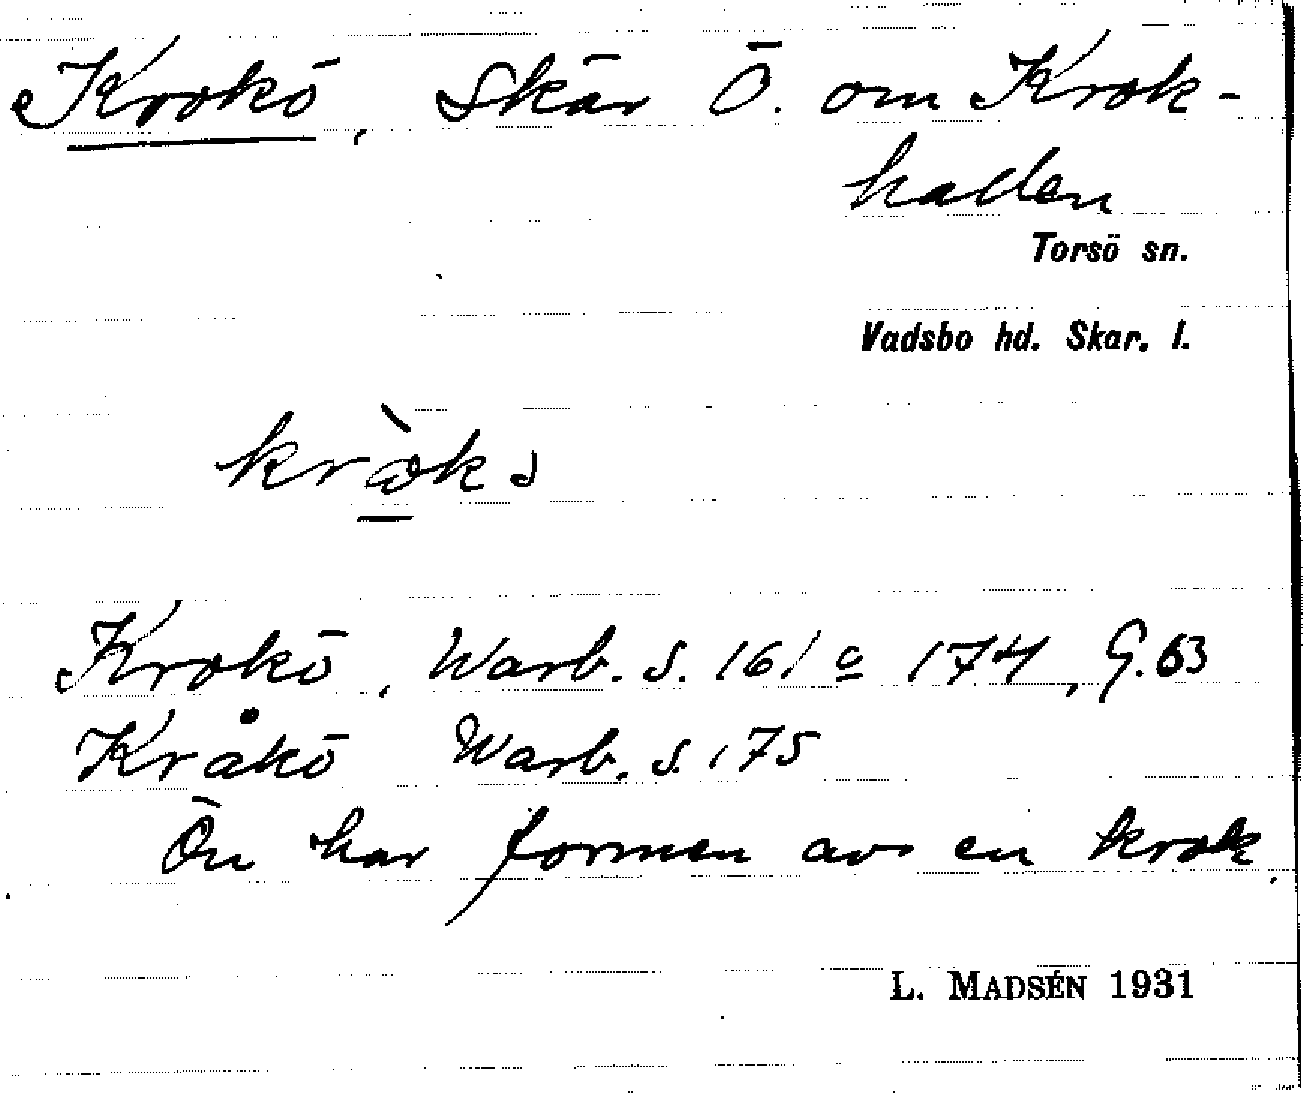 Krokö, Skär Ö. om Krok-
hallen
Torsö sn.
Vadsbo hd. Skar. l.
Krokö, Warb. s. 161 o 174, G. 63
Kråkö Warb. s. 175
Ön har formen av en krok.
L. MADSÉN 1931